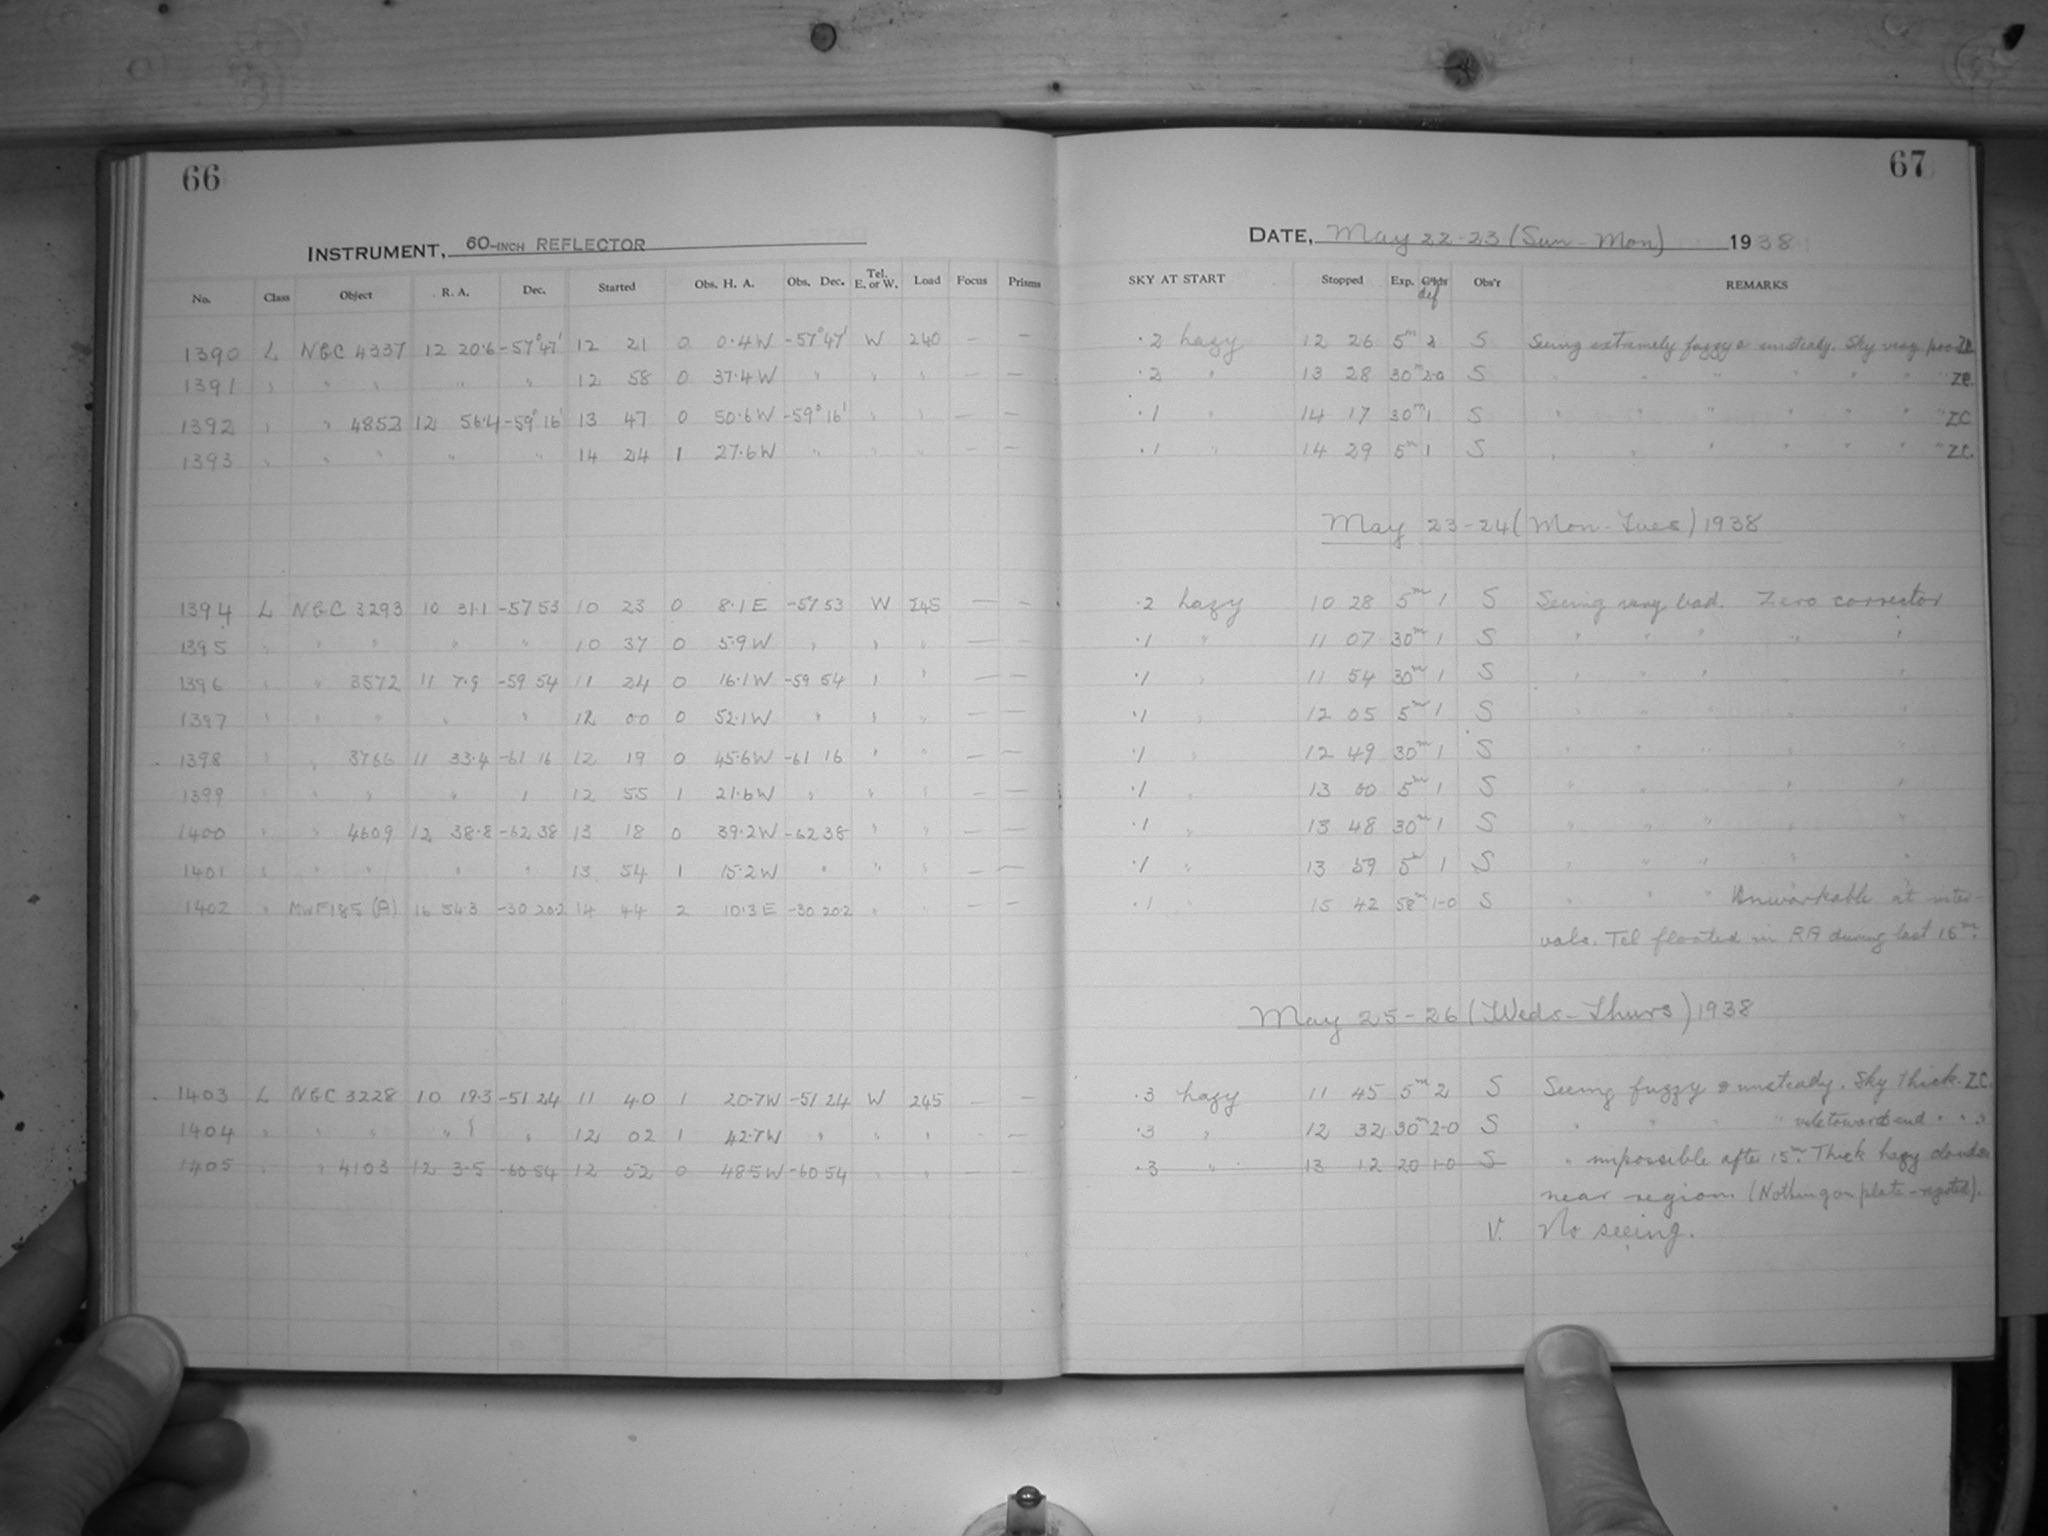 66
INSTRUMENT, 60-INCH REFLECTOR
No. Class Object R. A. Dec. Started Obs. H. A. Obs. Dec. Tel. E. or W. Load Focus Prisms
1390 L NGC 4337 12 20·6 -57°47' 12 21 0 0·4W -57°47' W 240 — —
1391 " " " " " 12 58 0 37·4W " " " — —
1392 " " 4852 12 56·4 -59°16' 13 47 0 50·6W -59°16' " " — —
1393 " " " " " 14 24 1 27·6W " " " — —
1394 L NGC 3293 10 31·1 -57 53 10 23 0 8·1E -57 53 W 245 — —
1395 " " " " " 10 37 0 5·9W " " " — —
1396 " " 3572 11 7·9 -59 54 11 24 0 16·1W -59 54 " " — —
1397 " " " " " 12 00 0 52·1W " " " — —
1398 " " 3766 11 33·4 -61 16 12 19 0 45·6W -61 16 " " — —
1399 " " " " " 12 55 1 21·6W " " " — —
1400 " " 4609 12 38·8 -62 38 13 18 0 39·2W -62 38 " " — —
1401 " " " " " 13 54 1 15·2W " " " — —
1402 " MWF185 (A) 16 54·3 -30 20·2 14 44 2 10·3E -30 20·2 " " — —
1403 L NGC 3228 10 19·3 -51 24 11 40 1 20·7W -51 24 W 245 — —
1404 " " " " " 12 02 1 42·7W " " " — —
1405 " " 4103 12 3·5 -60 54 12 52 0 48·5W -60 54 " "
67
DATE, May 22-23 (Sun - Mon) 1938
SKY AT START Stopped Exp. def Obs'r REMARKS
·2 hazy 12 26 5m 2 S Seeing extremely fuzzy & unsteady. Sky very poor
·2 " 13 28 30m 2-0 S " " " " " " " ZC.
·1 " 14 17 30m 1 S " " " " " " " ZC
·1 " 14 29 5m 1 S " " " " " " " ZC.
May 23-24 (Mon-Tues) 1938
·2 hazy 10 28 5m 1 S Seeing very bad. Zero corrector
·1 " 11 07 30m 1 S " " " " "
·1 " 11 54 30m 1 S " " " " "
·1 " 12 05 5m 1 S " " " " "
·1 " 12 49 30m 1 S " " " " "
·1 " 13 00 5m 1 S " " " " "
·1 " 13 48 30m 1 S " " " " "
·1 " 13 59 5m 1 S " " " " "
·1 " 15 42 58m 1-0 S " " " Unworkable at inter-
vals. Tel floated in RA during last 16m.
May 25-26 (Weds-Thurs) 1938
·3 hazy 11 45 5m 2 S Seeing fuzzy & unsteady. Sky thick. ZC.
·3 " 12 32 30m 2-0 S " " " " towards end " "
·3 " 13 12 20 1-0 S " impossible after 15m. Thick hazy clouds
near region. (Nothing on plate - rejected).
V. No seeing.